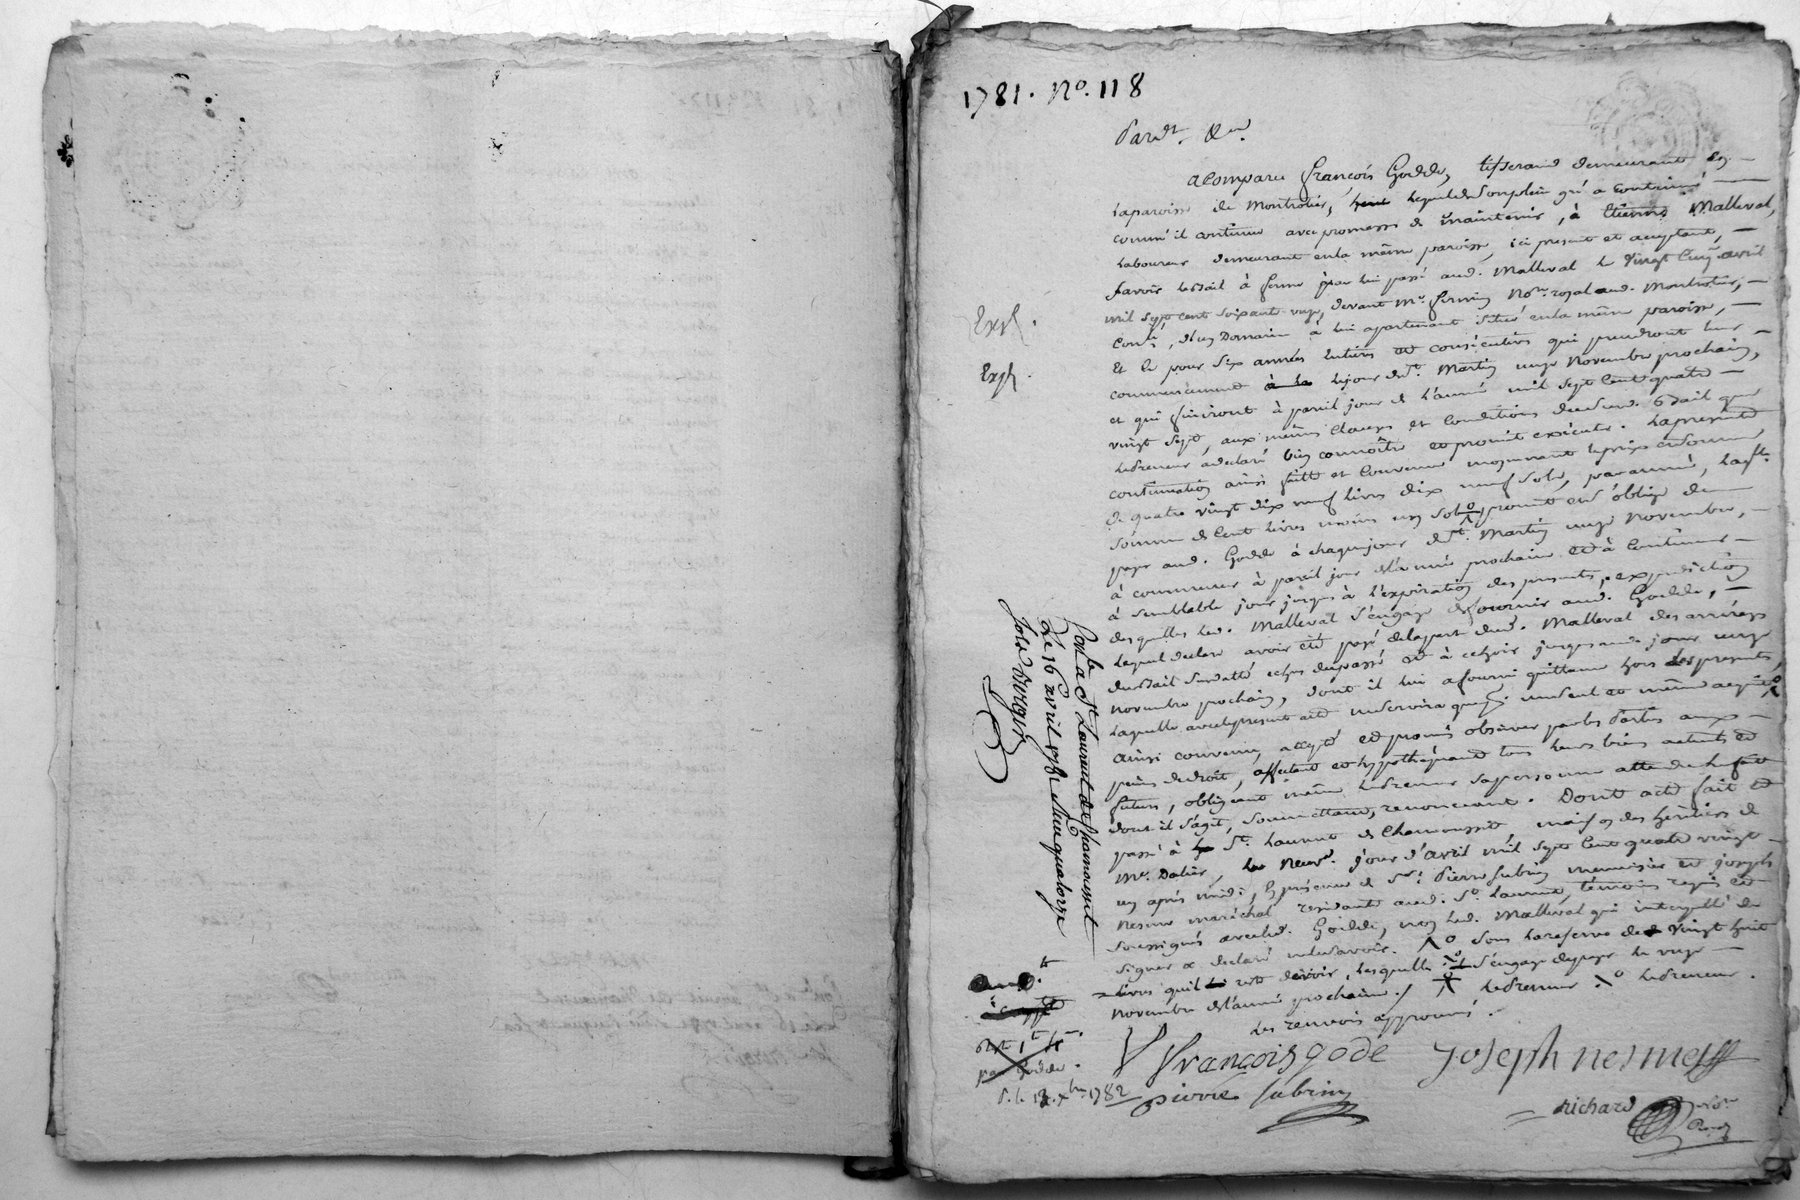 1781. No. 118
Pard.t &.a
a Comparu françois Godde, tisserand demeurant en
la paroisse de Montrotier, lequel de son plein gré a continué
comm'il continue avec promesse de maintenir, à Etienne Malleval,
Laboureur demeurant en la même paroisse, ici present et acceptant,
savoir le Bail à ferme par lui passé aud. Malleval le vingt cinq avril
mil sept cent soixante onze, devant Me. No.re royal aud. Montrotier,
d'un Domaine à lui apartenant situé en la même paroisse,
Et ce pour six années entieres et consécutives qui prendront leur
commencement le jour de St. Martin onze Novembre prochain,
et qui finiront à pareil jour de l'année mil sept cent quatre
vingt sept, aux mêmes clauses et conditions dud. Bail que
le Preneur a declaré bien connoître et promit exécuter. La presente
continuation ainsi faitte et convenue moyennant le prix et somme
de quatre vingt dix neuf livres dix neuf sols, par année, lad.
somme de cent livres moins un sol promet et s'oblige de
payer aud. Godde à chaque jour de St. Martin onze Novembre,
à commencer à pareil jour de l'année prochaine et à continuer
à semblable jour jusques à l'expiration des presentes, expedition
desquelles led. Malleval s'engage de fournir aud. Godde,
lequel declare avoir été payé de la part dud. Malleval des arrérages
dud. Bail echus du passé et à echoir jusques aud. jour onze
novembre prochain, dont il lui a fourni quittance hors des presentes,
laquelle avec le present acte ne servira que d'un seul et même acquit,
ainsi convenu, accepté et promis observer par les Parties aux
peines de droit, affectant et hypothéquant tous leurs biens actuels et
futurs, obligeant même le Preneur sa personne attendu le fait
dont il s'agit, soumettant, renonceant. Dont acte fait et
passé à St. Laurent de Chamousset, maison des héritiers de
Me. Dalier, le neuv.e jour d'avril mil sept cent quatre vingt
un après midi, En présence de Sr. Pierre Subrin menuisier et joseph
Nesme maréchal residants aud. St. Laurent, témoins requis et
soussignés avec led. Godde, non led. Malleval qui interpellé de
signer a declaré ne le savoir. sous la reserve de vingt huit
livres qu'il reste devoir, lesquelles s'engage de payer le onze
novembre de l'année prochaine. le Preneur le Preneur.
les renvois approuvés.
françois gode
Joseph nesme
pierre subrin
Richard
No.re
Royal
Expé.
Expé.
Con.lé a St. Laurent de Chamousset
Le 16 avril 1781
par Godde
P. le 18 Xbre 1782